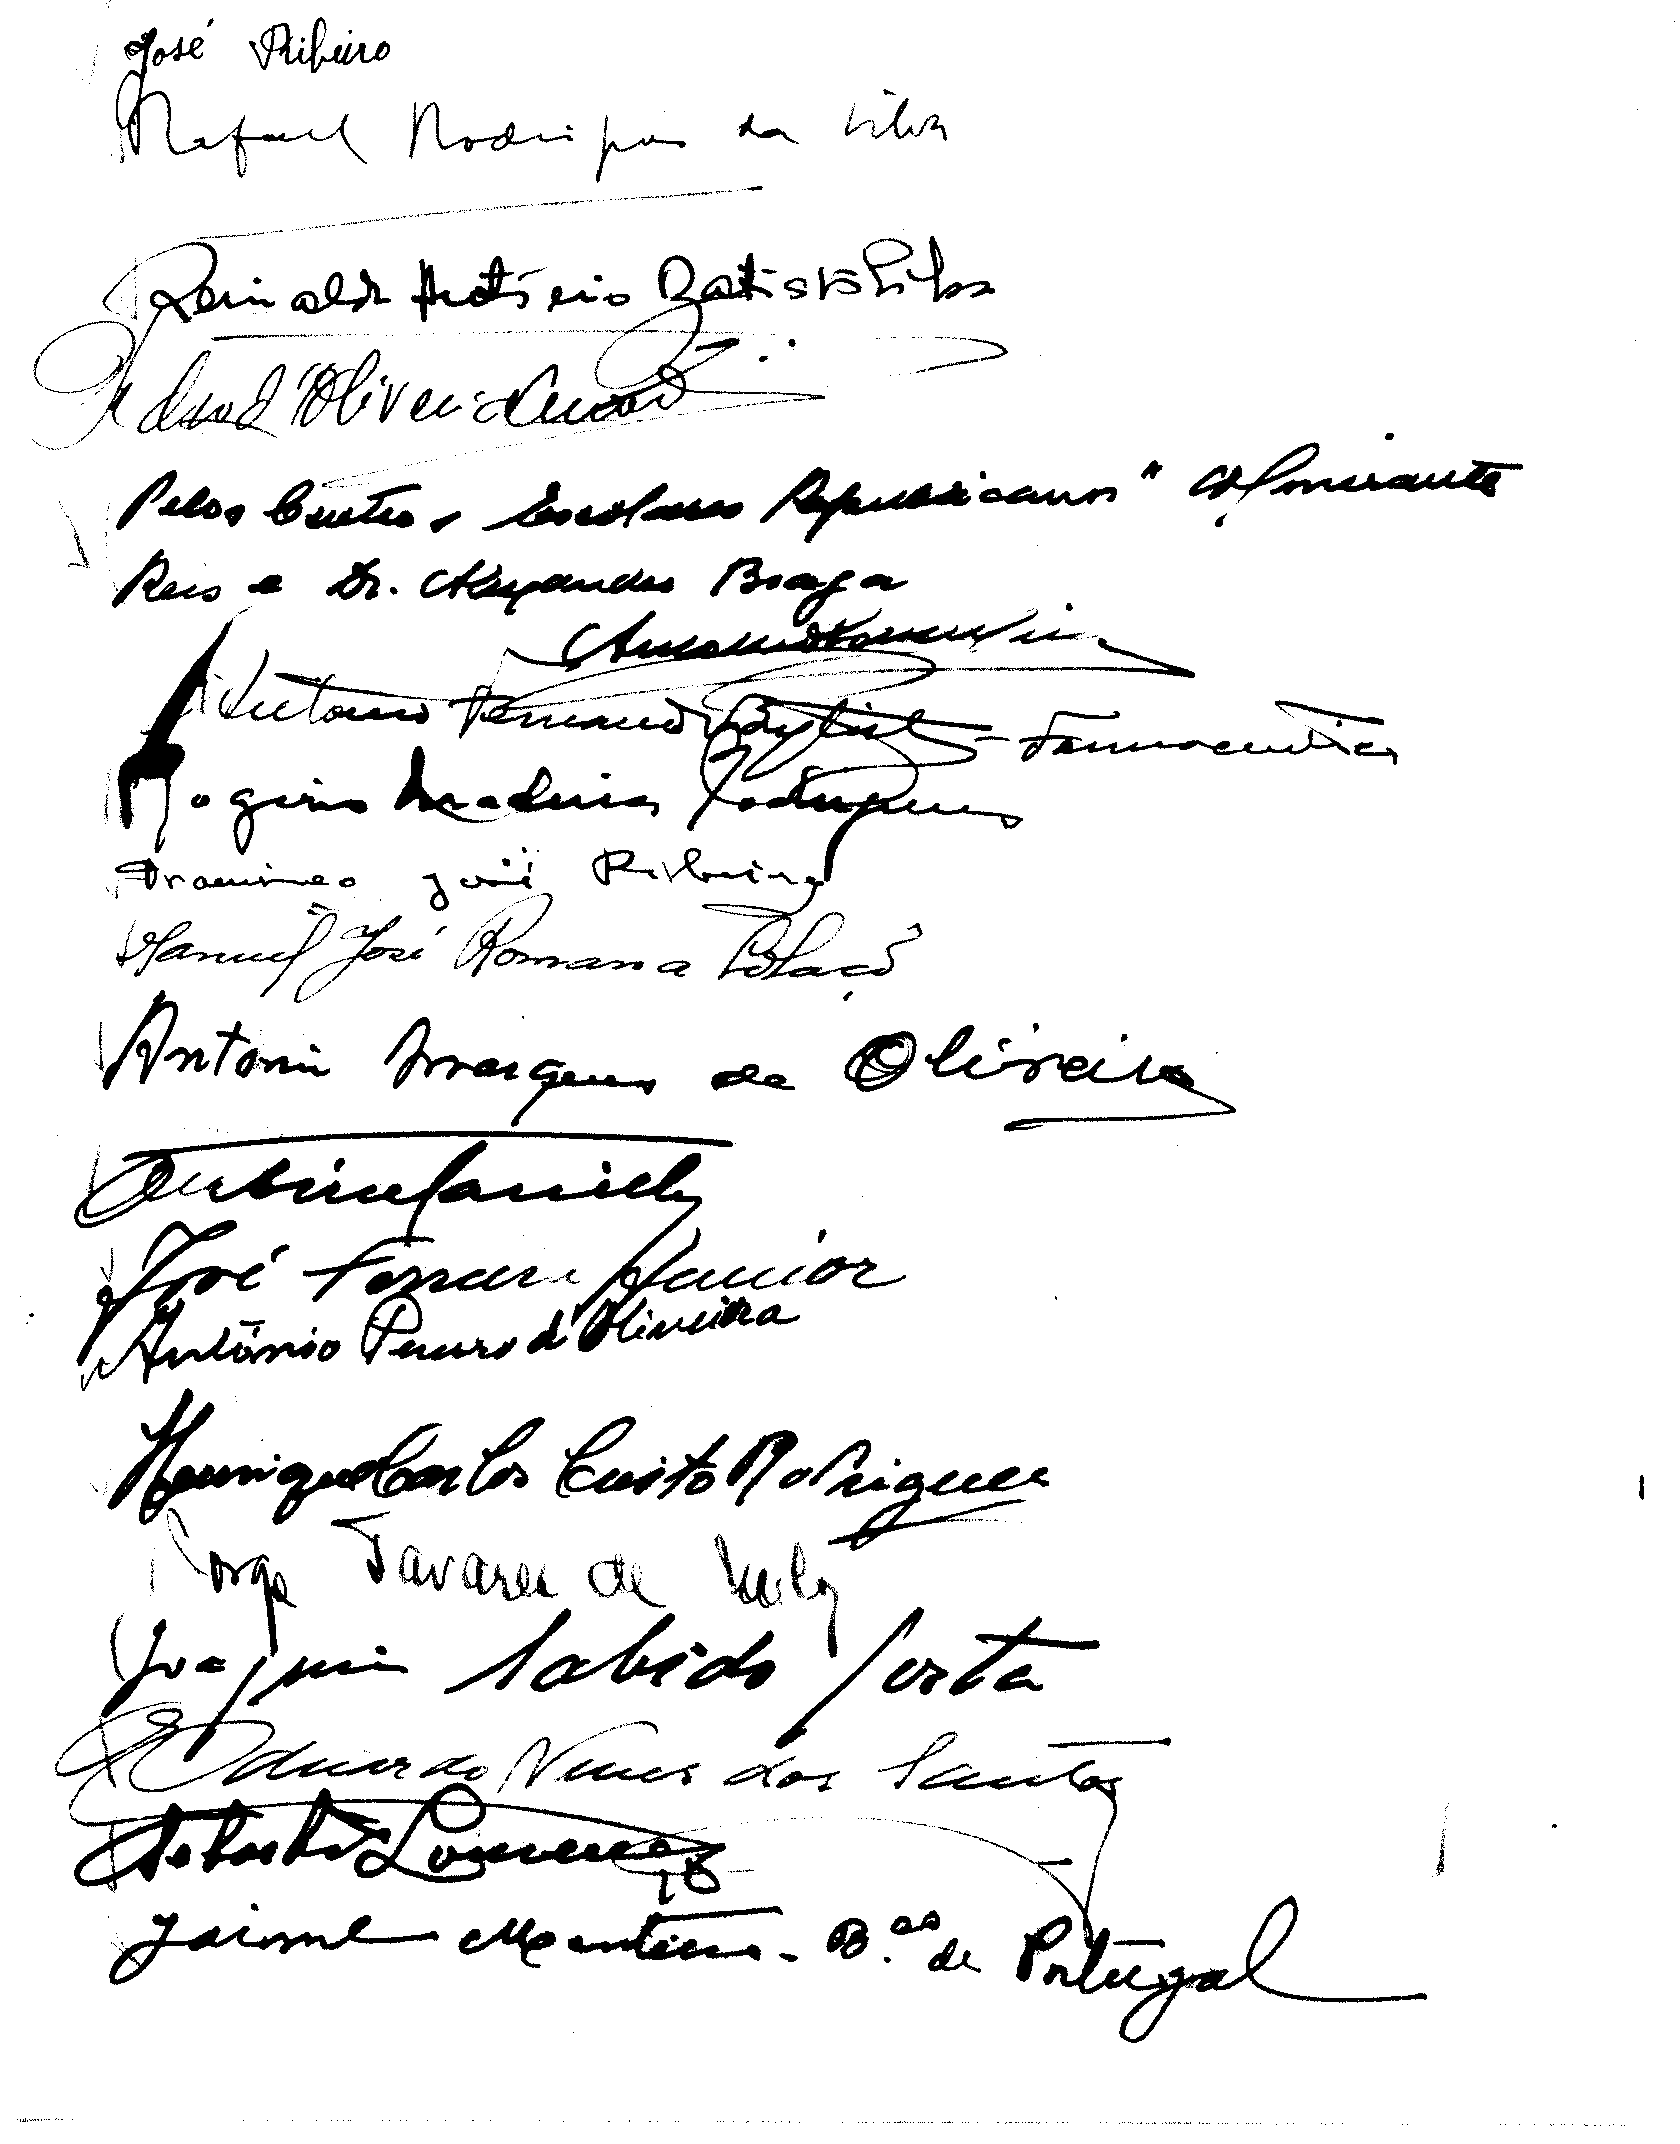 José Ribeiro
Rafael Rodrigues da Silva
Reinaldo António Batista Silva
d'Oliveira
Pelos Centros Escolares Republicanos "Almirante
Reis e Dr. Alexandre Braga
António Fernando Baptista - Farmaceutico
Rogerio Madeira Rodrigues
Francisco José Ribeiro
Manuel José Romana Colaço
Antonio Marques de Oliveira
José Ferrara Junior
António Penuro d'Oliveira
Henrique Carlos Rodrigues
Jorge Tavares de
Joaquim Sabido Costa
Eduardo Nunes dos Santos
Sebastião Lourenço
Jaime Monteiro - B.co de Portugal